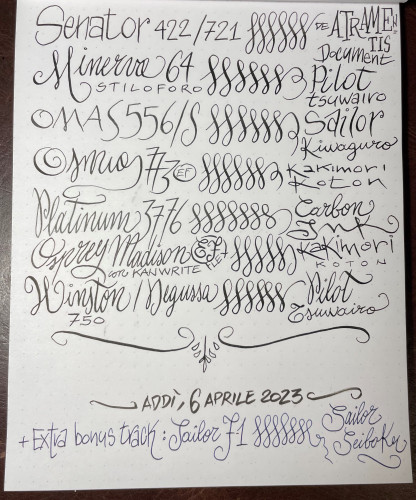 Senator 422/721 DE ATRAMENTIS Document
Minerva 64 STILOFORO Pilot tsuwairo
OMAS 556/S Sailor Kiwaguro
Osmia 773 EF Kakimori Koton
Platinum 3776 Carbon Ink
Osprey Madison con KANWRITE FLEX Kakimori KOTON
Winston / Degussa 750 Pilot Tsuwairo
ADDÌ, 6 APRILE 2023
+ Extra bonus track : Sailor J1 Sailor Seiboku